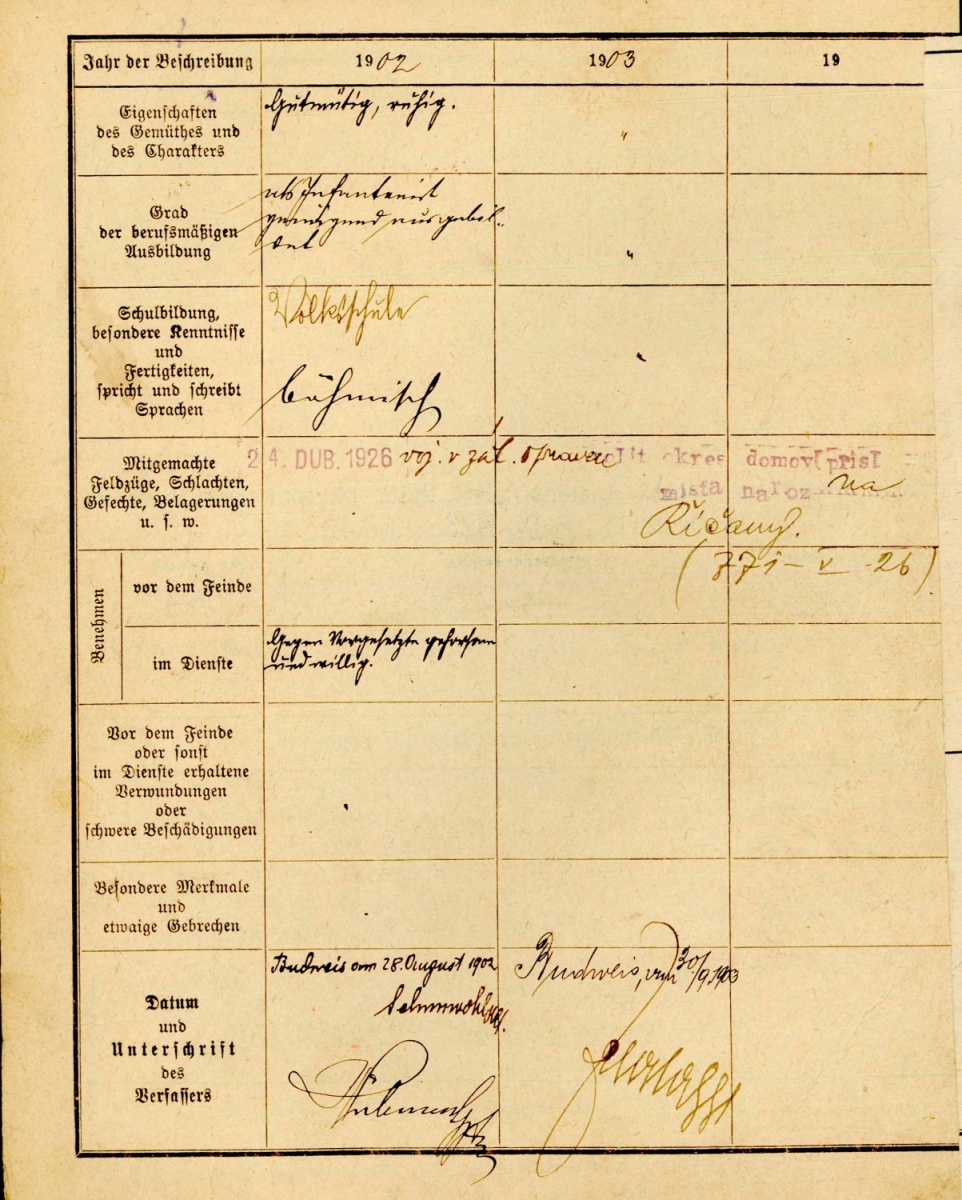 Jahr der Beschreibung
1902
1903
19
Eigenschaften
des Gemüthes und
des Charakters
Gutmütig, ruhig.
"
Grad
der berufsmäßigen
Ausbildung
als Infanterist
genügend ausgebil-
det
"
Schulbildung,
besondere Kenntnisse
und
Fertigkeiten,
spricht und schreibt
Sprachen
Volksschule
böhmisch
"
Mitgemachte
Feldzüge, Schlachten,
Gefechte, Belagerungen
u. s. w.
24. DUB. 1926 voj. v zál. opraveno polit okres domov přísl
místa naroz na
Říčany.
(771-V-26)
Benehmen
vor dem Feinde
im Dienste
Gegen Vorgesetzte gehorsam
und willig.
Vor dem Feinde
oder sonst
im Dienste erhaltene
Verwundungen
oder
schwere Beschädigungen
Besondere Merkmale
und
etwaige Gebrechen
Datum
und
Unterschrift
des
Verfassers
Budweis am 28. August 1902
Budweis, am 30/9. 1903